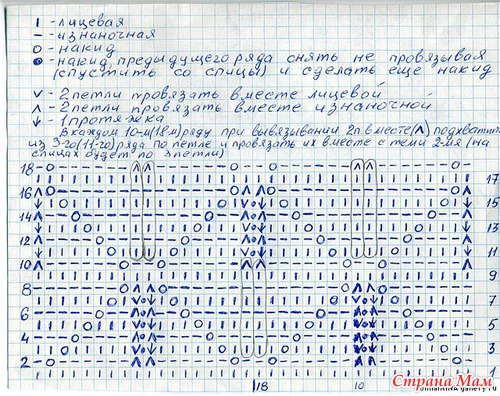 I - лицевая
— - изнаночная
О - накид
● - накид предыдущего ряда снять не провязывая
(спустить со спицы) и сделать еще накид
v - 2 петли провязать вместе лицевой
ʌ - 2 петли провязать вместе изнаночной
↓ - 1 протяжка
В каждом 10-м (18м) ряду при вывязывании 2п. вместе (ʌ) подхватить
из 3-го (11-го) ряда по петле и провязать их вместе с теми 2-мя (на
спицах будет по 3 петли)
18
17
16
15
14
13
12
11
10
9
8
7
6
5
4
3
2
1
18
10
Страна Мам